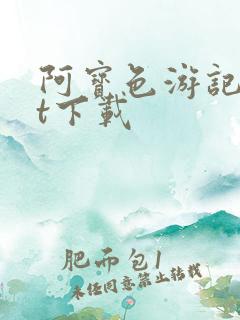 阿寶色游記
t下載
肥而包1
未经同意禁止转载